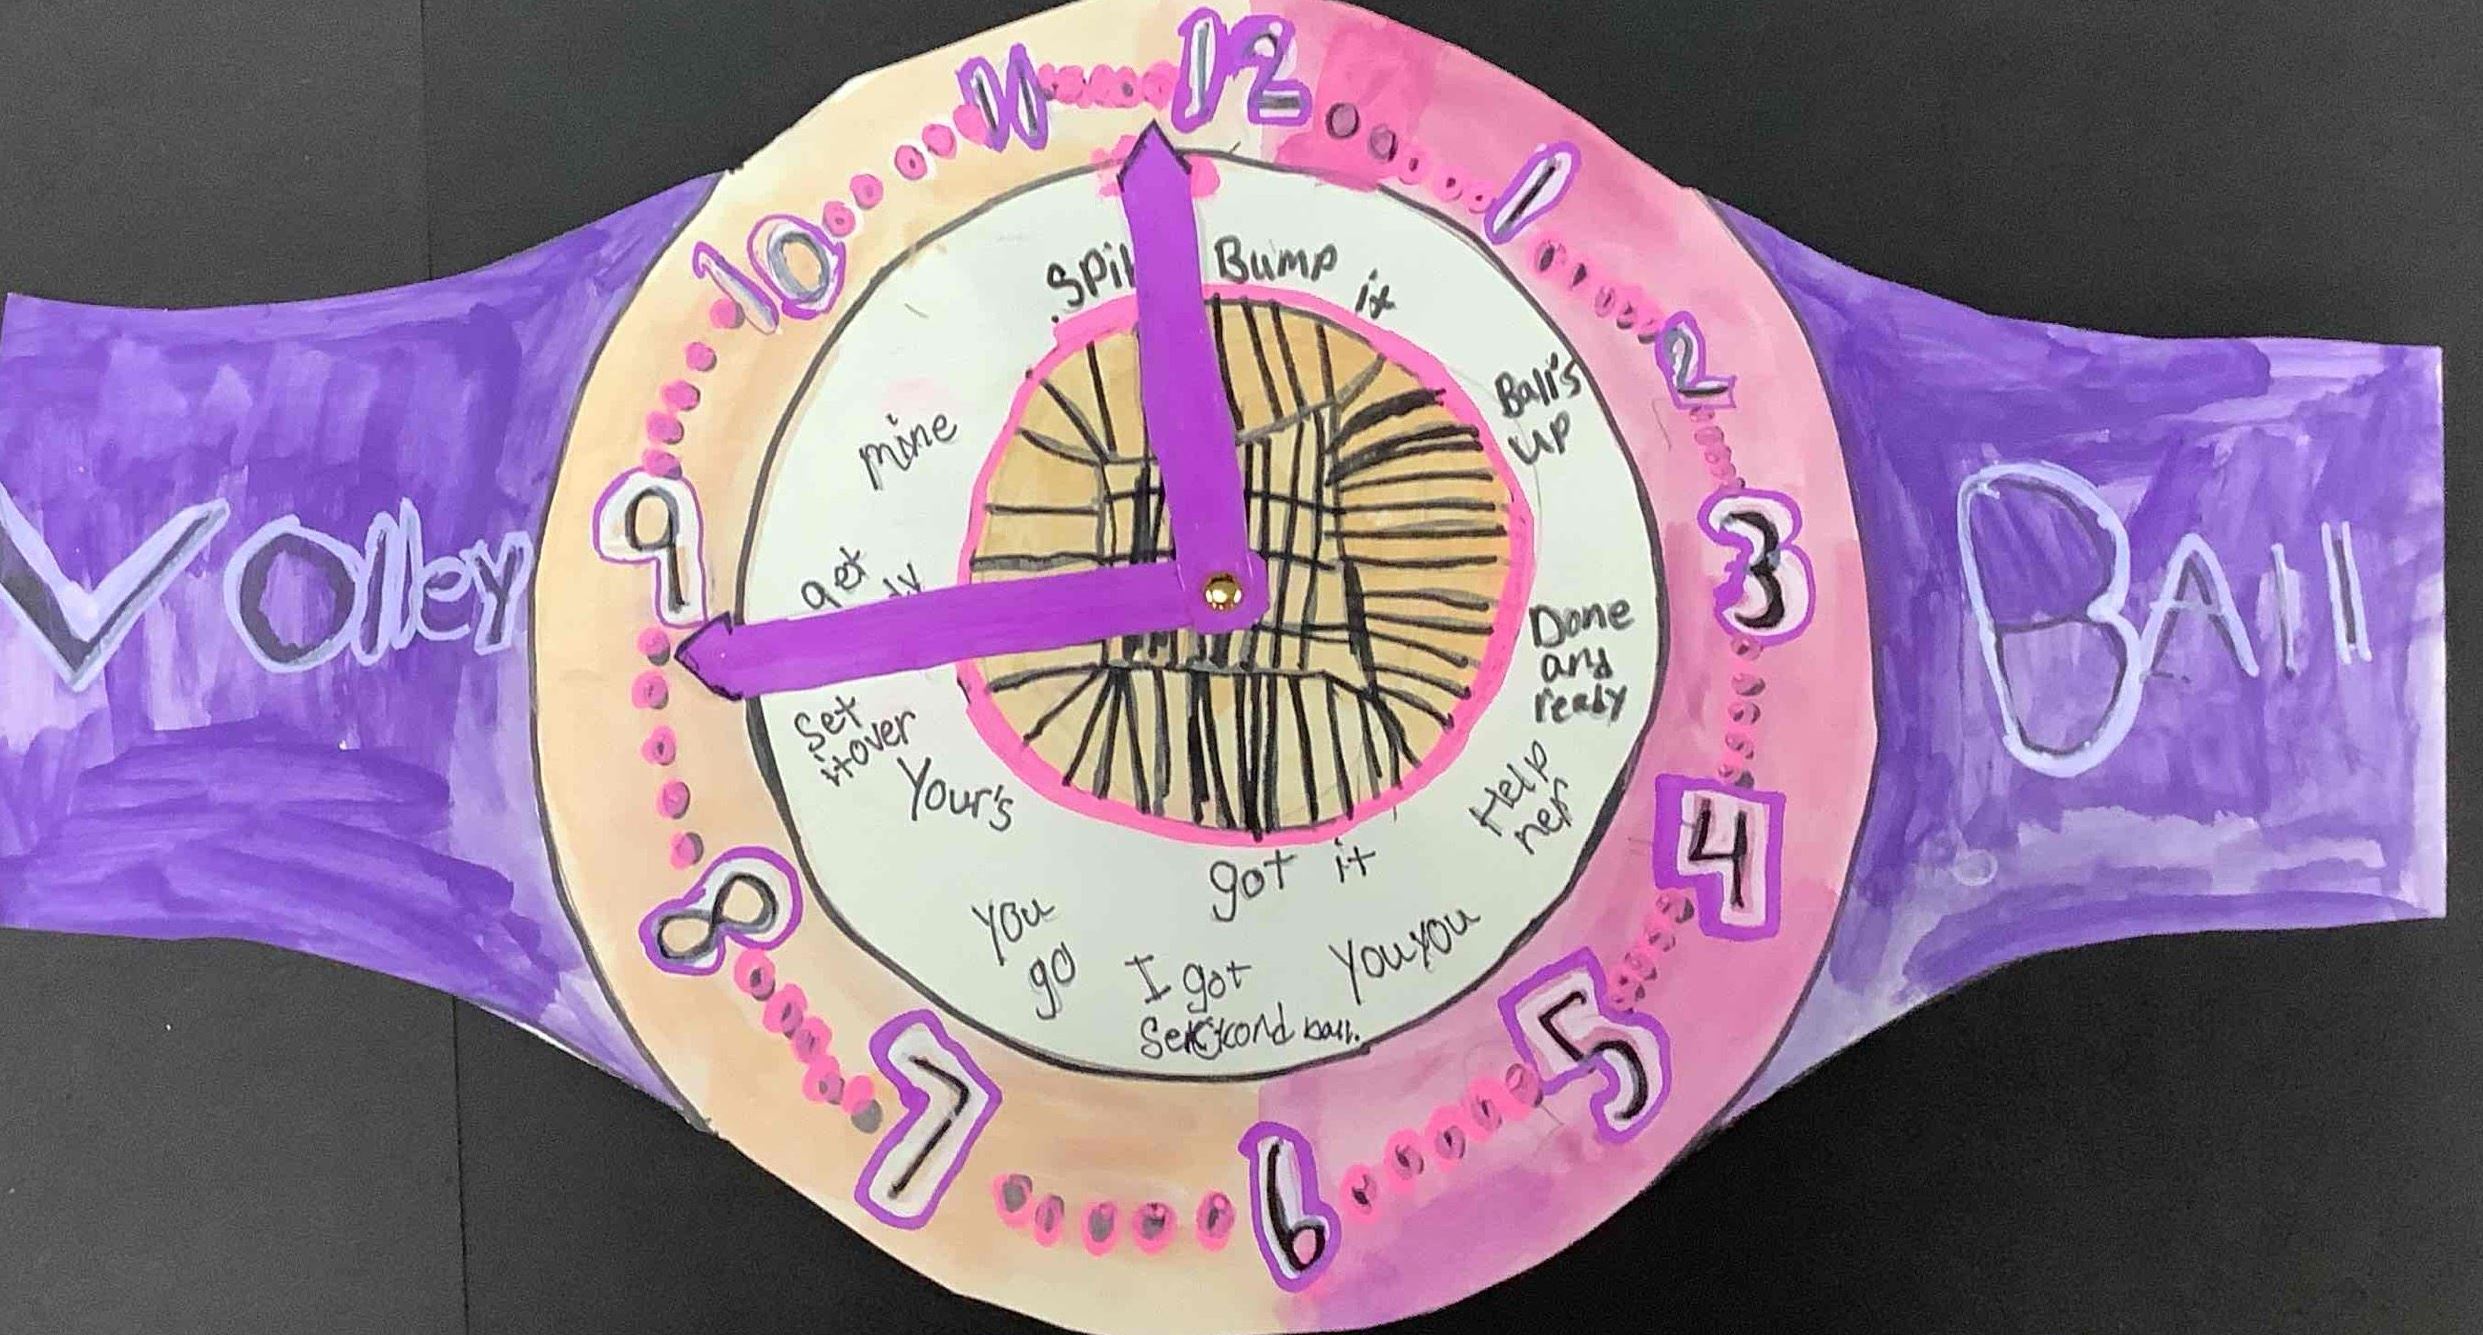 Volley
BAll
12
1
2
3
4
5
6
7
8
9
10
11
Bump
it
Ball's
up
Done
and
ready
Help
her
got it
YouYou
I got
ball.
You
go
Your's
Set
it over
get
mine